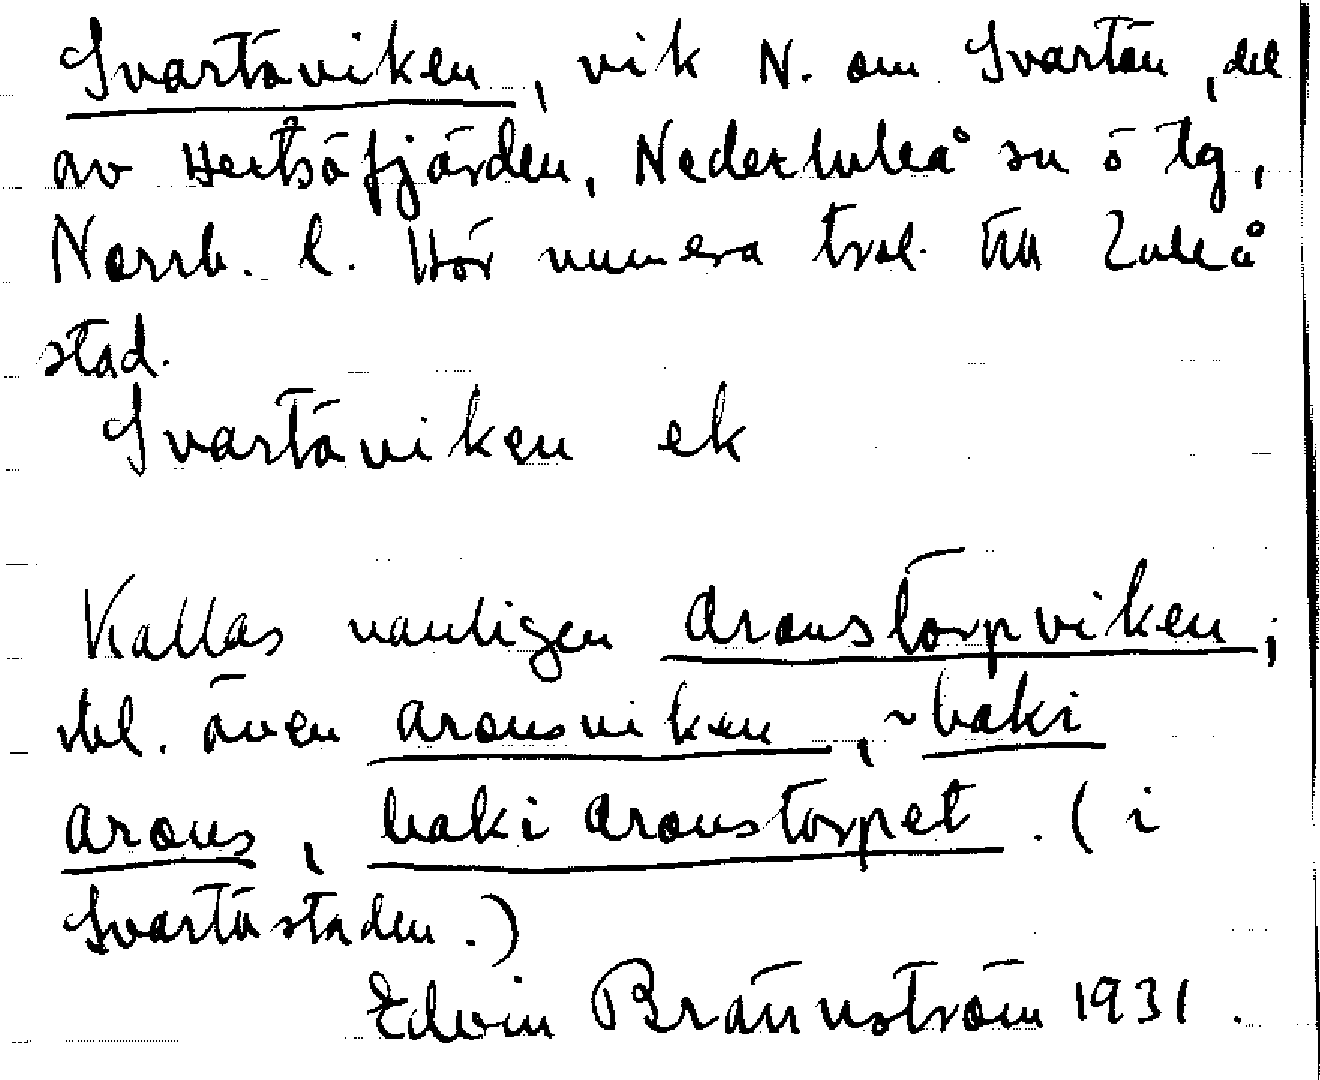 Svartöviken, vik N. om Svartön, del
av Hertsöfjärden, Nederluleå sn ö tg,
Norrb. l. Hör numera trol. till Luleå
stad.
Svartöviken ek
Kallas vanligen Aronstorpviken;
ibl. även Aronsviken, ~baki
Arons, baki Aronstorpet. (i
Svartöstaden.)
Edvin Brännström 1931.